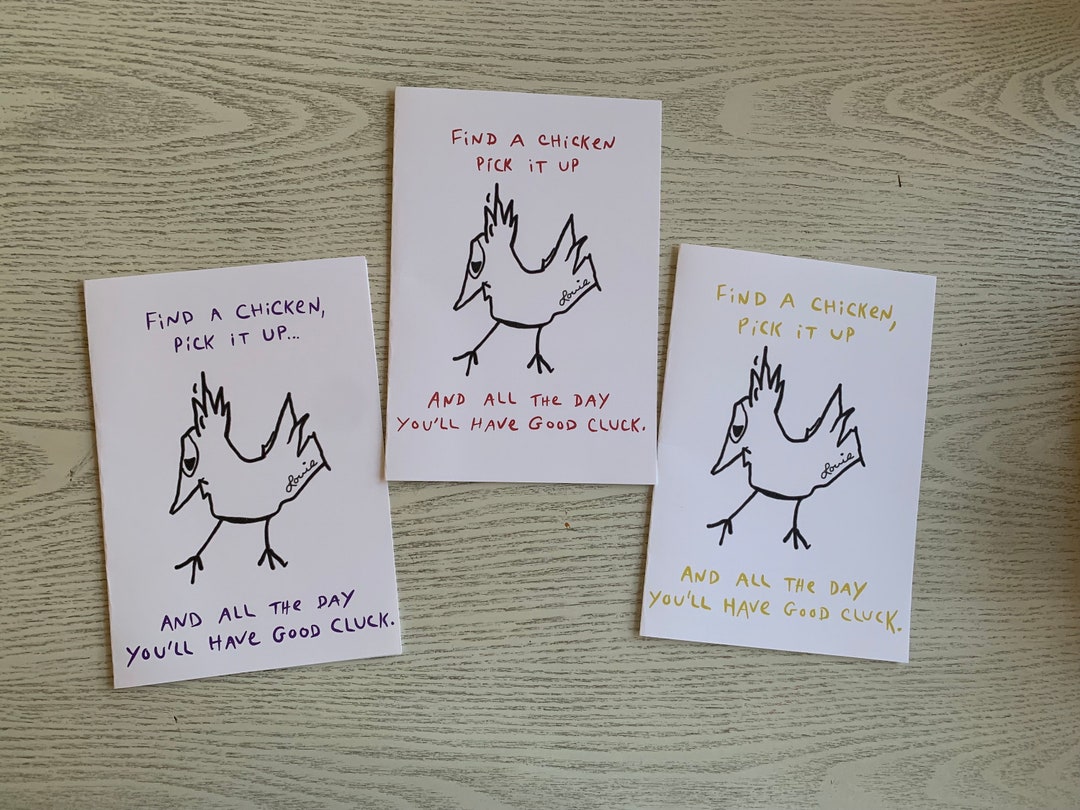 FiND A CHiCKeN,
PiCK iT UP...
Louie
AND ALL THe DAY
YOU'LL HAVe GOOD CLUCK.
FiND A CHiCKeN
PiCK iT UP
Louie
AND ALL THe DAY
YOU'LL HAVe GOOD CLUCK.
FiND A CHiCKeN,
PiCK iT UP
Louie
AND ALL THe DAY
YOU'LL HAVe GOOD CLUCK.